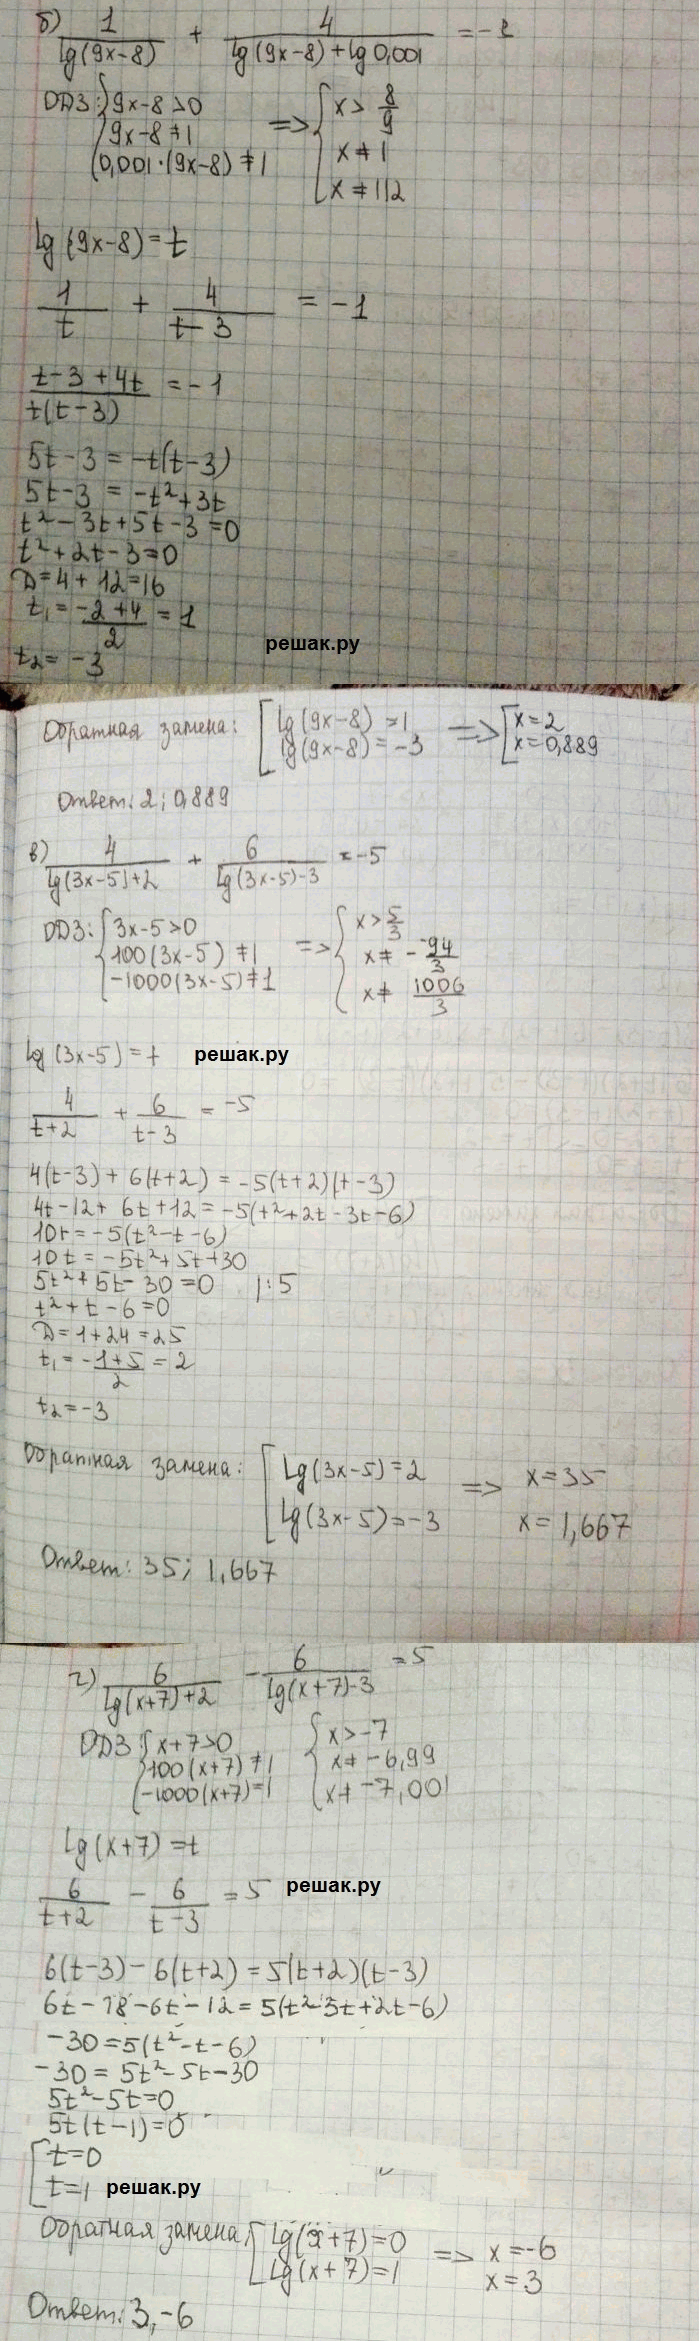 б) 1/lg(9x-8) + 4/(lg(9x-8)+lg 0,001) = -1
ОДЗ: { 9x-8>0 => { x > 8/9
9x-8≠1 x≠1
0,001·(9x-8)≠1 x≠112
lg(9x-8)=t
1/t + 4/(t-3) = -1
(t-3+4t)/(t(t-3)) = -1
5t-3 = -t(t-3)
5t-3 = -t²+3t
t²-3t+5t-3=0
t²+2t-3=0
D=4+12=16
t₁ = (-2+4)/2 = 1
решак.ру
t₂ = -3
Обратная замена: [ lg(9x-8)=1 => [ x=2
lg(9x-8)=-3 x=0,889
Ответ: 2; 0,889
в) 4/(lg(3x-5)+2) + 6/(lg(3x-5)-3) = -5
ОДЗ: { 3x-5>0 => { x > 5/3
100(3x-5)≠1 x ≠ - -94/3
-1000(3x-5)≠1 x ≠ 1006/3
lg(3x-5)=t решак.ру
4/(t+2) + 6/(t-3) = -5
4(t-3)+6(t+2) = -5(t+2)(t-3)
4t-12+6t+12 = -5(t²+2t-3t-6)
10t = -5(t²-t-6)
10t = -5t²+5t+30
5t²+5t-30=0 |:5
t²+t-6=0
D=1+24=25
t₁ = (-1+5)/2 = 2
t₂=-3
Обратная замена: [ lg(3x-5)=2 => x=35
lg(3x-5)=-3 x=1,667
Ответ: 35; 1,667
г) 6/(lg(x+7)+2) - 6/(lg(x+7)-3) = 5
ОДЗ { x+7>0 { x>-7
100(x+7)≠1 x≠-6,99
-1000(x+7)=1 x≠-7,001
lg(x+7)=t
6/(t+2) - 6/(t-3) = 5 решак.ру
6(t-3)-6(t+2)=5(t+2)(t-3)
6t-18-6t-12=5(t²-3t+2t-6)
-30=5(t²-t-6)
-30=5t²-5t-30
5t²-5t=0
5t(t-1)=0
[ t=0
t=1 решак.ру
Обратная замена: [ lg(x+7)=0 => x=-6
lg(x+7)=1 x=3
Ответ: 3, -6